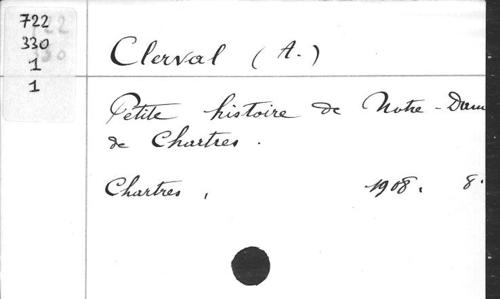 722
330
1
1
Clerval (A.)
Petite histoire de Notre-Dame
de Chartres.
Chartres, 1908. 8.